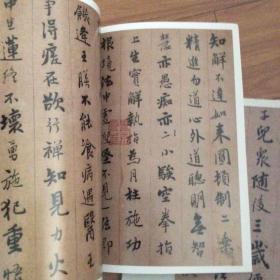 子兒衆隨後三歲
知解不逞如來圓頓制二乘
精進勿道心外道聰明無智
慧亦愚癡亦小騃空拳指
上生實解執指為月枉施功
根境法中虛捏怪不見一法即
饑逢王膳不能飡病遇醫王
爭得瘥在欲行禪知見力火
中生蓮終不壞勇施犯重悟